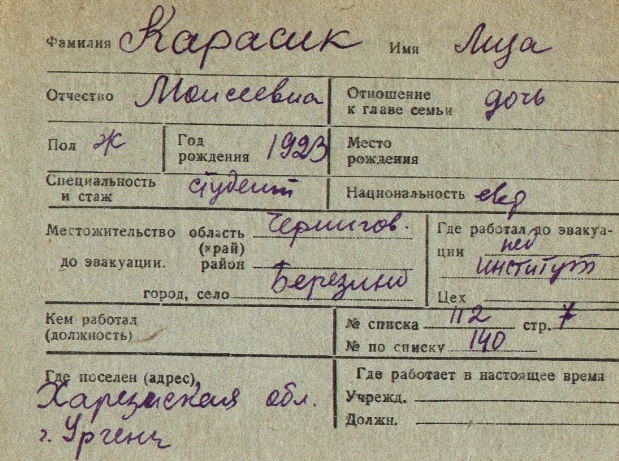 Фамилия Карасик Имя Лиза
Отчество Моисеевна Отношение к главе семьи дочь
Пол Ж Год рождения 1923 Место рождения
Специальность и стаж студент Национальность евр
Местожительство область (край) Чернигов.
до эвакуации. район
город, село Березино
Где работал до эвакуа-
ции пед
институт
Цех
Кем работал
(должность)
№ списка 112 стр. 7
№ по списку 140
Где поселен (адрес)
Харезмская обл.
г. Ургенч
Где работает в настоящее время
Учрежд.
Должн.